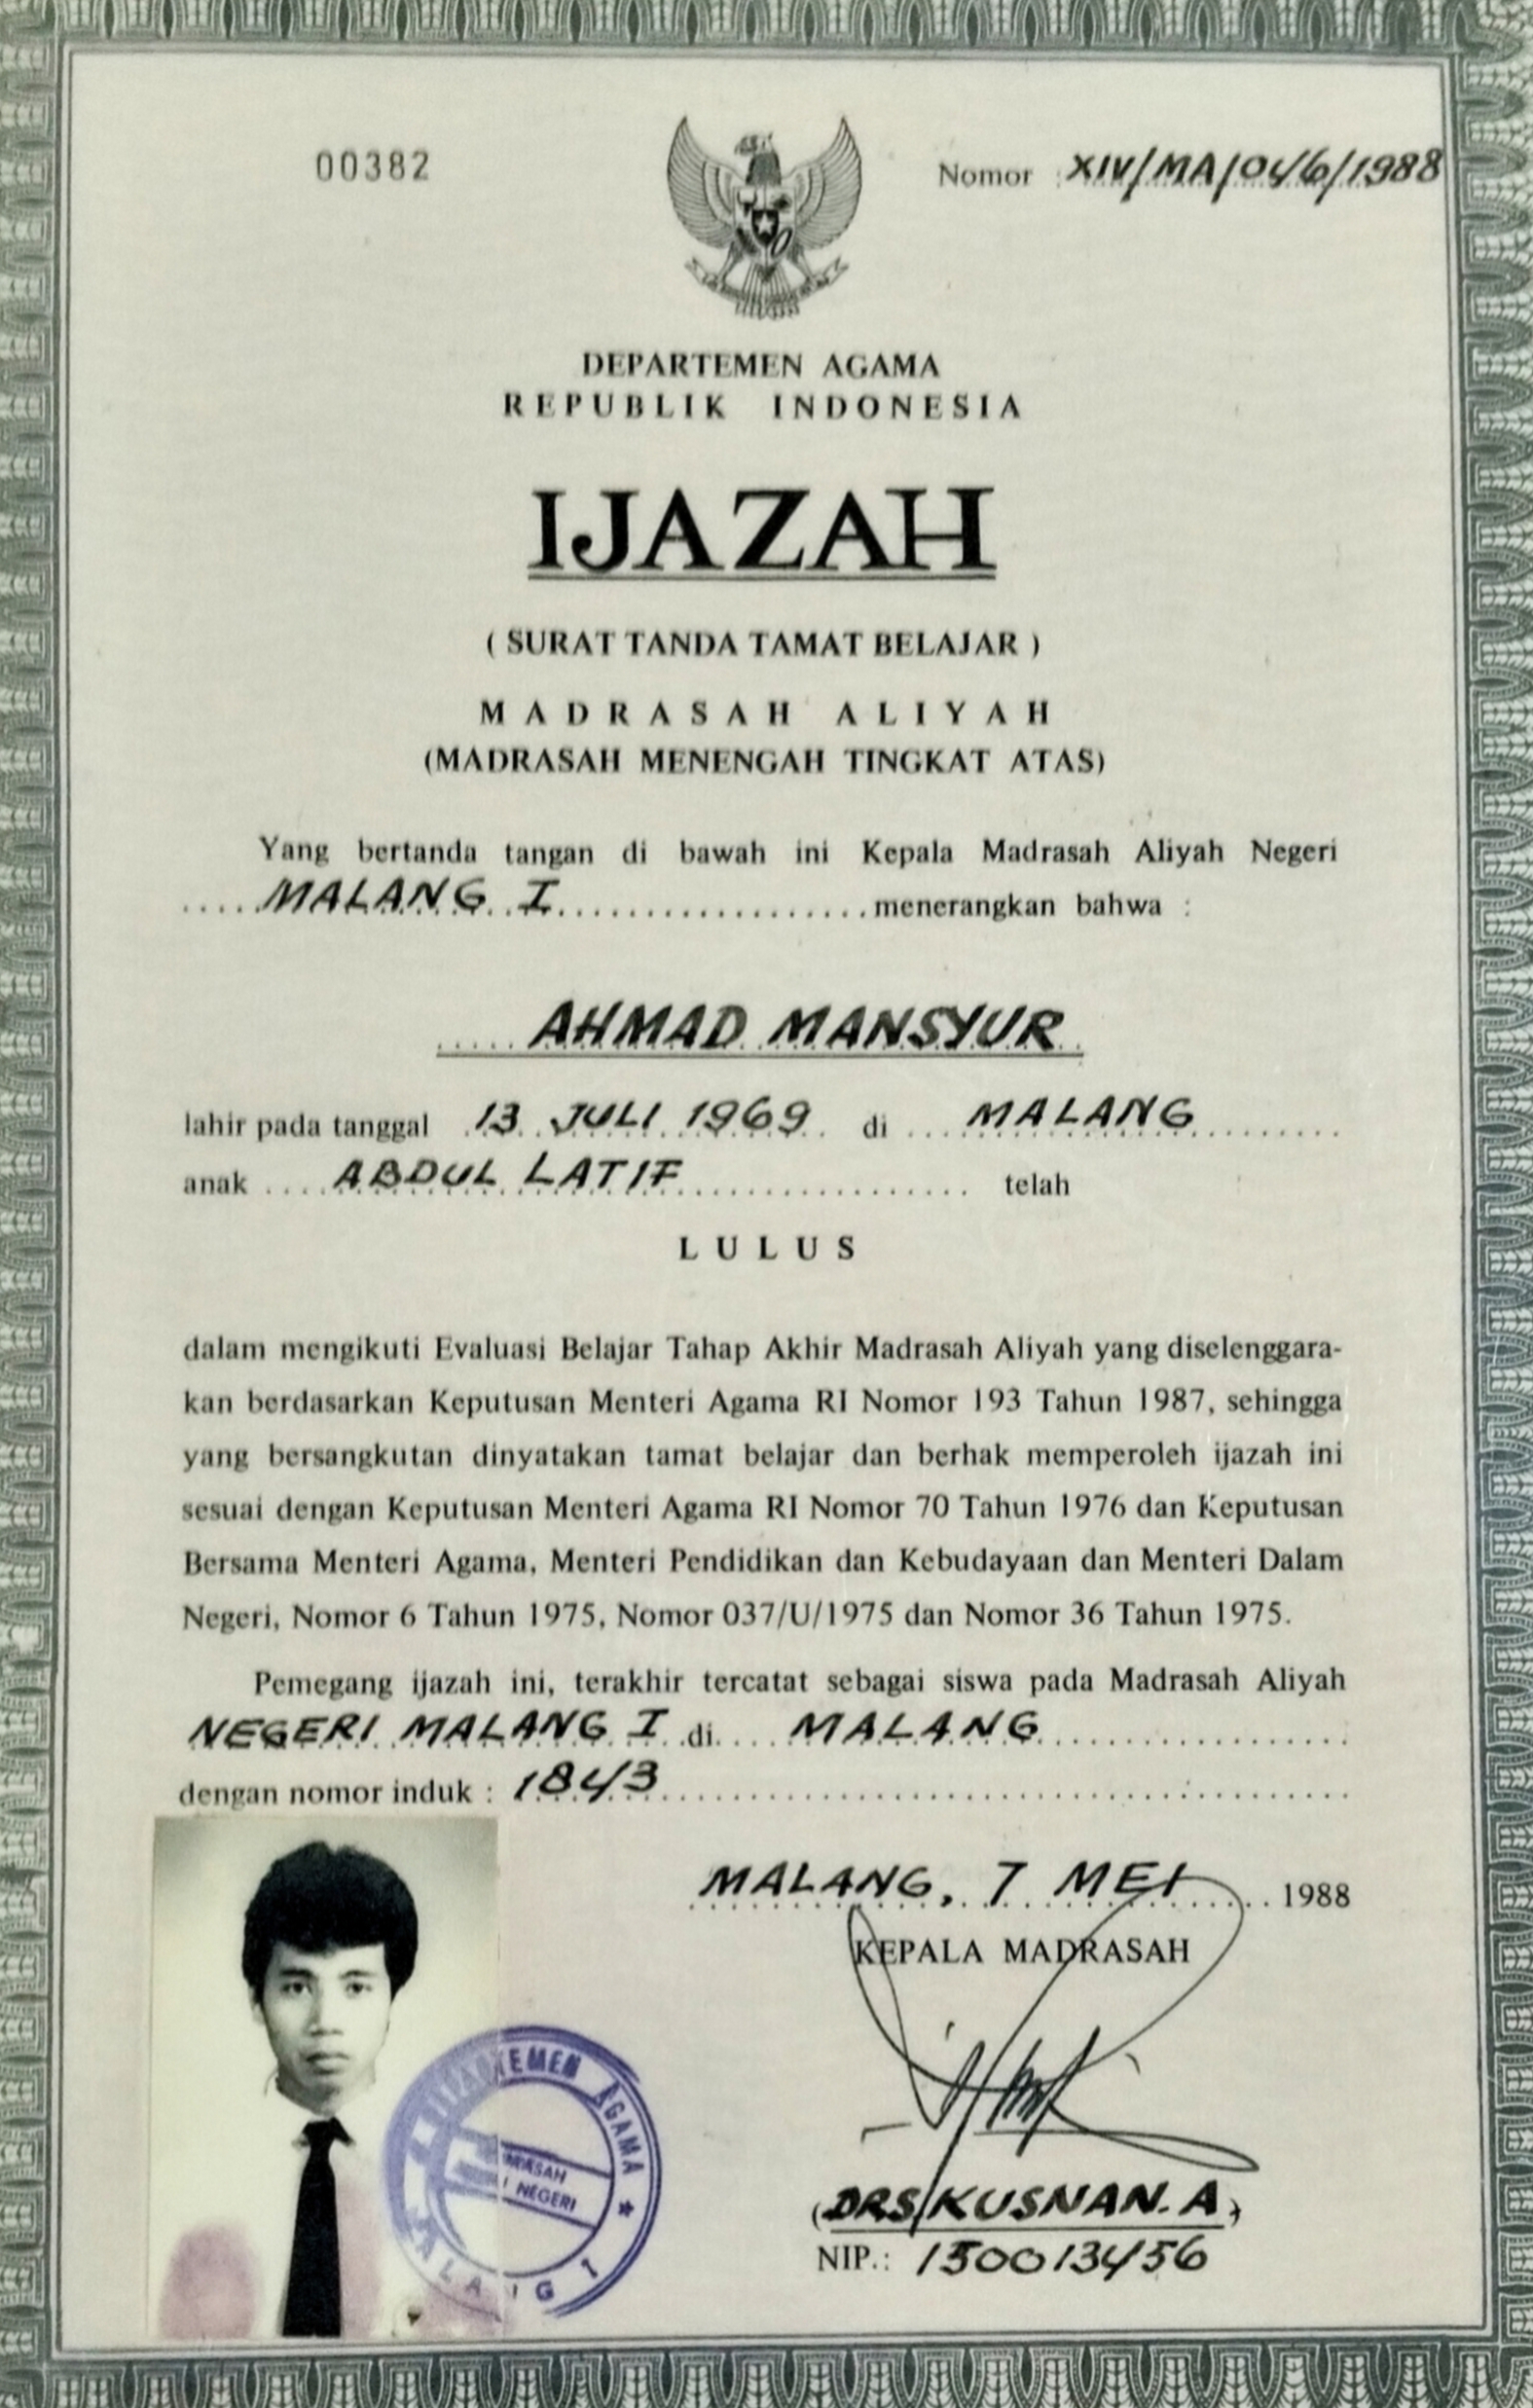 00382
Nomor : XIV/MA/046/1988
DEPARTEMEN AGAMA
REPUBLIK INDONESIA
IJAZAH
( SURAT TANDA TAMAT BELAJAR )
MADRASAH ALIYAH
(MADRASAH MENENGAH TINGKAT ATAS)
Yang bertanda tangan di bawah ini Kepala Madrasah Aliyah Negeri
MALANG I menerangkan bahwa :
AHMAD MANSYUR
lahir pada tanggal 13 JULI 1969 di MALANG
anak ABDUL LATIF telah
LULUS
dalam mengikuti Evaluasi Belajar Tahap Akhir Madrasah Aliyah yang diselenggara-
kan berdasarkan Keputusan Menteri Agama RI Nomor 193 Tahun 1987, sehingga
yang bersangkutan dinyatakan tamat belajar dan berhak memperoleh ijazah ini
sesuai dengan Keputusan Menteri Agama RI Nomor 70 Tahun 1976 dan Keputusan
Bersama Menteri Agama, Menteri Pendidikan dan Kebudayaan dan Menteri Dalam
Negeri, Nomor 6 Tahun 1975, Nomor 037/U/1975 dan Nomor 36 Tahun 1975.
Pemegang ijazah ini, terakhir tercatat sebagai siswa pada Madrasah Aliyah
NEGERI MALANG I di MALANG
dengan nomor induk : 1843
MALANG, 7 MEI 1988
KEPALA MADRASAH
AGAMA
NEGERI
(DRS KUSNAN. A)
NIP.: 150013456